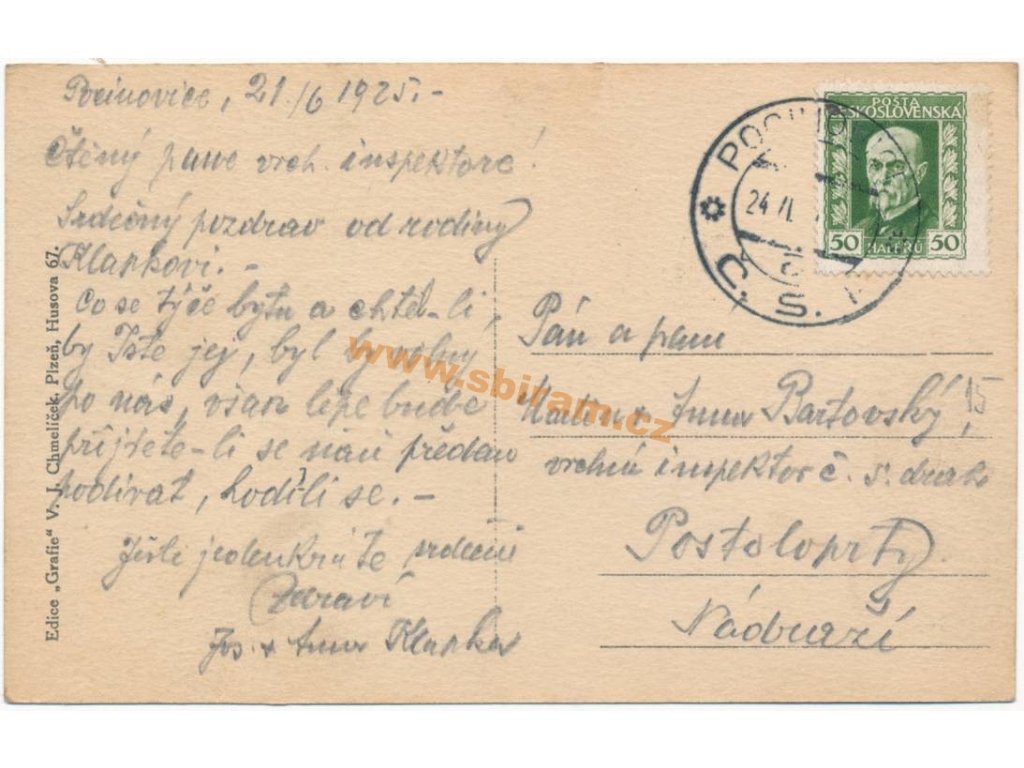 Pocinovice, 21./6 1925.-
Ctěný pane vrch. inspektore!
Srdečný pozdrav od rodiny
Klapkovi.-
Co se týče bytu a chtěl-li
by Jste jej, byl by volny
po nás, však lépe bude
přijdete-li se naň předem
podívat, hodí-li se.-
Ještě jedenkráte srdečně
Zdraví
Jos. + Anna Klapka
Edice „Grafie“ V. J. Chmelíček, Plzeň, Husova 67.
POŠTA
ČESKOSLOVENSKA
50 HALÉŘŮ 50
24 VI.
Č. S. R.
Pán a paní
Martin + Anna Bartovský,
vrchní inspektor č. s. drah
Postoloprty
Nádraží
www.sbiram.cz